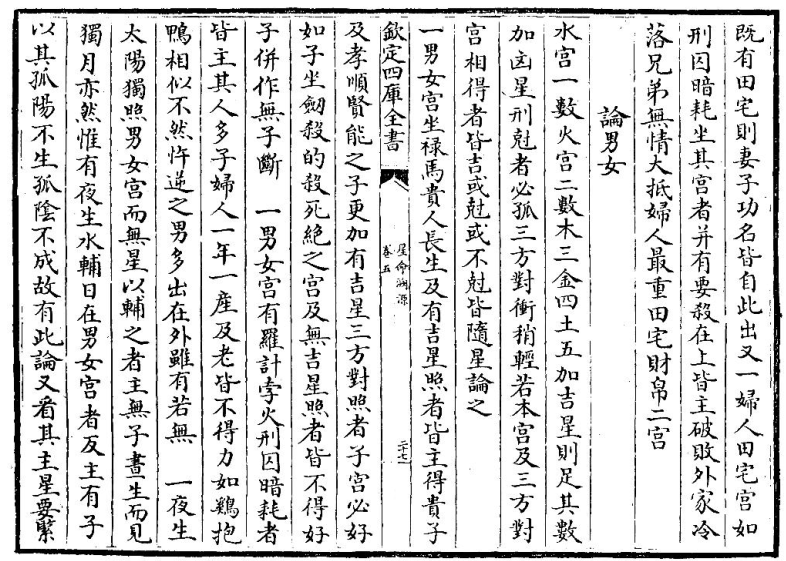 既有田宅則妻子功名皆自此出又一婦人田宅宮如
刑囚暗耗坐其宮者并有要殺在上皆主破敗外家冷
落兄弟無情大抵婦人最重田宅財帛二宮
論男女
水宮一數火宮二數木三金四土五加吉星則足其數
加凶星刑尅者必孤三方對衝稍輕若本宮及三方對
宮相得者皆吉或尅或不尅皆隨星論之
一男女宮坐祿馬貴人長生及有吉星照者皆主得貴子
欽定四庫全書
星命溯源
卷五
二十七
及孝順賢能之子更加有吉星三方對照者子宮必好
如子坐劒殺的殺死絕之宮及無吉星照者皆不得好
子併作無子斷　一男女宮有羅計孛火刑囚暗耗者
皆主其人多子婦人一年一產及老皆不得力如鷄抱
鴨相似不然忤逆之男多出在外雖有若無　一夜生
太陽獨照男女宮而無星以輔之者主無子晝生而見
獨月亦然惟有夜生水輔日在男女宮者反主有子
以其孤陽不生孤陰不成故有此論又看其主星要緊